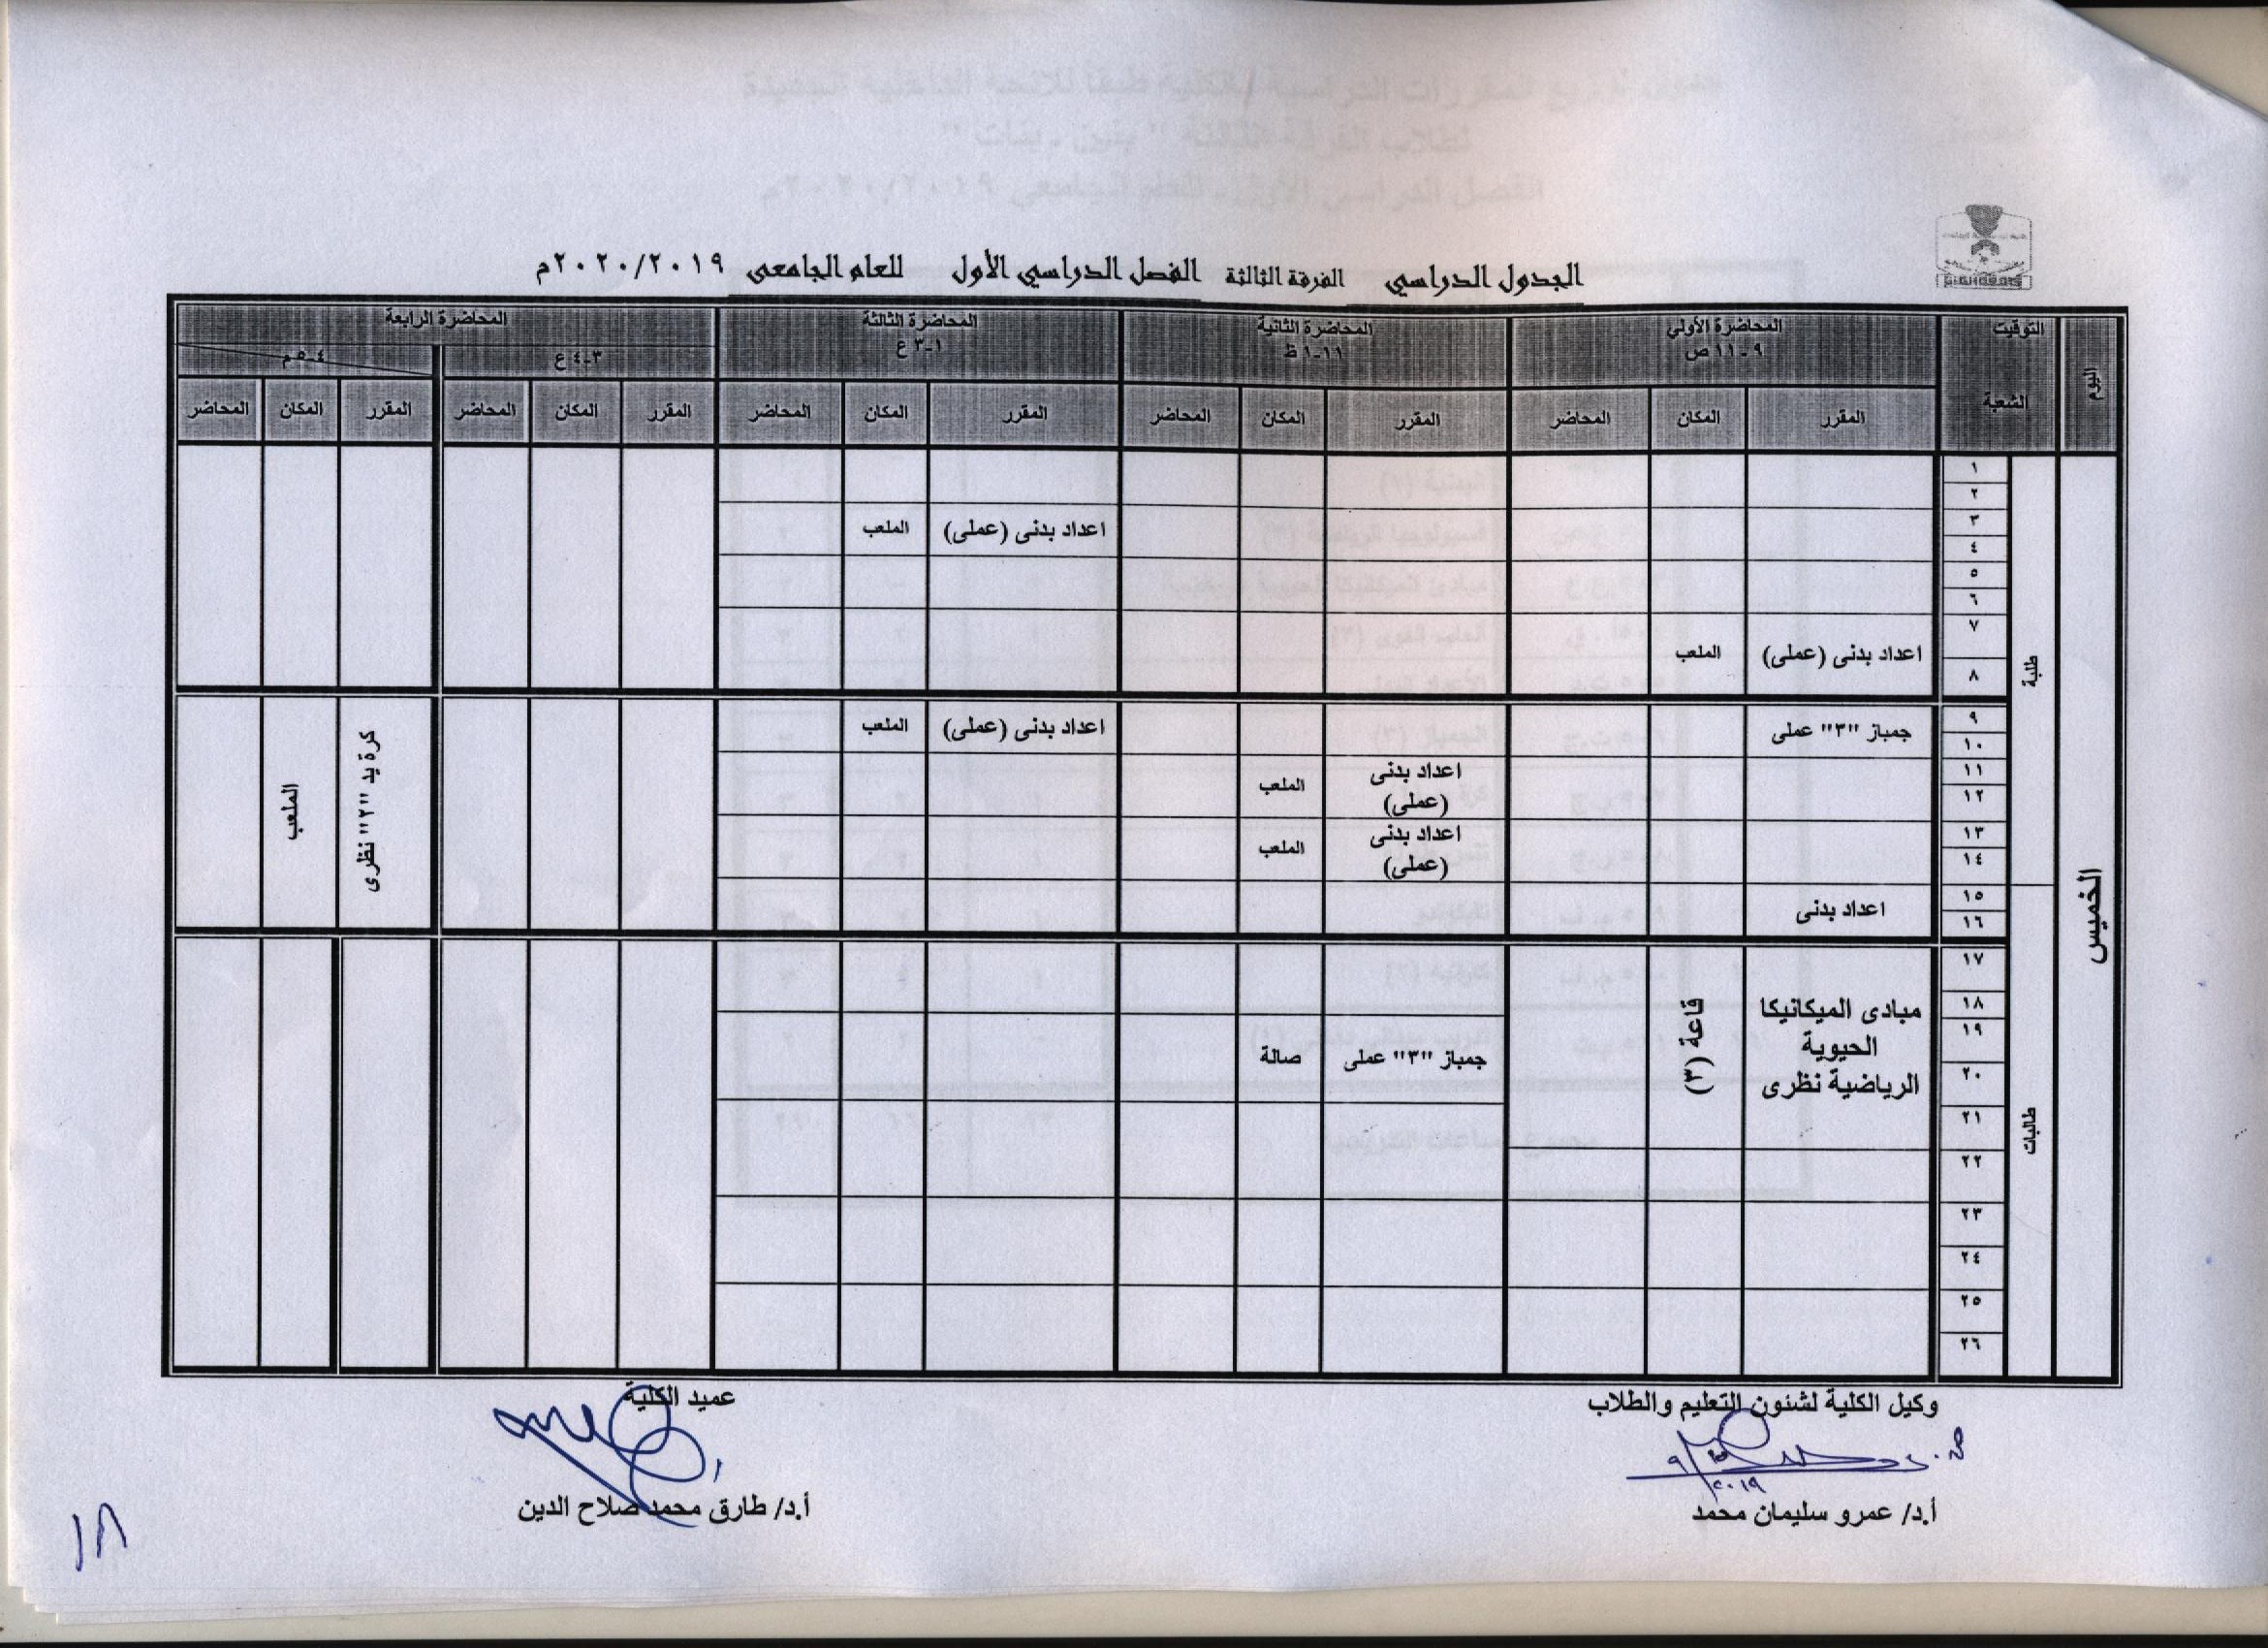 الجدول الدراسي الفرقة الثالثة الفصل الدراسي الأول للعام الجامعى ٢٠٢٠/٢٠١٩م
اليوم
التوقيت
الشعبة
المحاضرة الأولي
٩ - ١١ ص
المحاضرة الثانية
١١-١ ظ
المحاضرة الثالثة
١-٣ ع
المحاضرة الرابعة
٣-٤ ع
٤-٥ م
المقرر المكان المحاضر المقرر المكان المحاضر المقرر المكان المحاضر المقرر المكان المحاضر المقرر المكان المحاضر
الخميس
طلبة
١
٢
٣
اعداد بدنى (عملى) الملعب
٤
٥
٦
٧
اعداد بدنى (عملى) الملعب
٨
٩
جمباز "٣" عملى
اعداد بدنى (عملى) الملعب
كرة يد "٢" نظرى
الملعب
١٠
١١
اعداد بدنى
(عملى)
الملعب
١٢
١٣
اعداد بدنى
(عملى)
الملعب
١٤
١٥
اعداد بدنى
١٦
طالبات
١٧
١٨
مبادى الميكانيكا
الحيوية
الرياضية نظرى
قاعة (٣)
١٩
جمباز "٣" عملى صالة
٢٠
٢١
٢٢
٢٣
٢٤
٢٥
٢٦
وكيل الكلية لشئون التعليم والطلاب
عميد الكلية
٢٠١٩
أ.د/ عمرو سليمان محمد
أ.د/ طارق محمد صلاح الدين
١٨